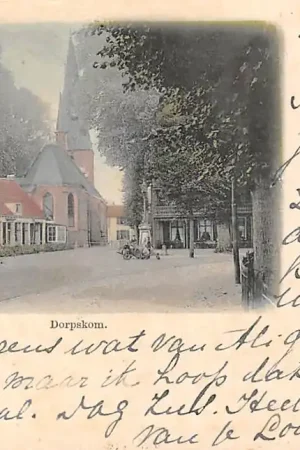 Dorpskom.
rens wat van Alig
maar ik hoop dat
al. Dag Zus. Hee
van je Loo